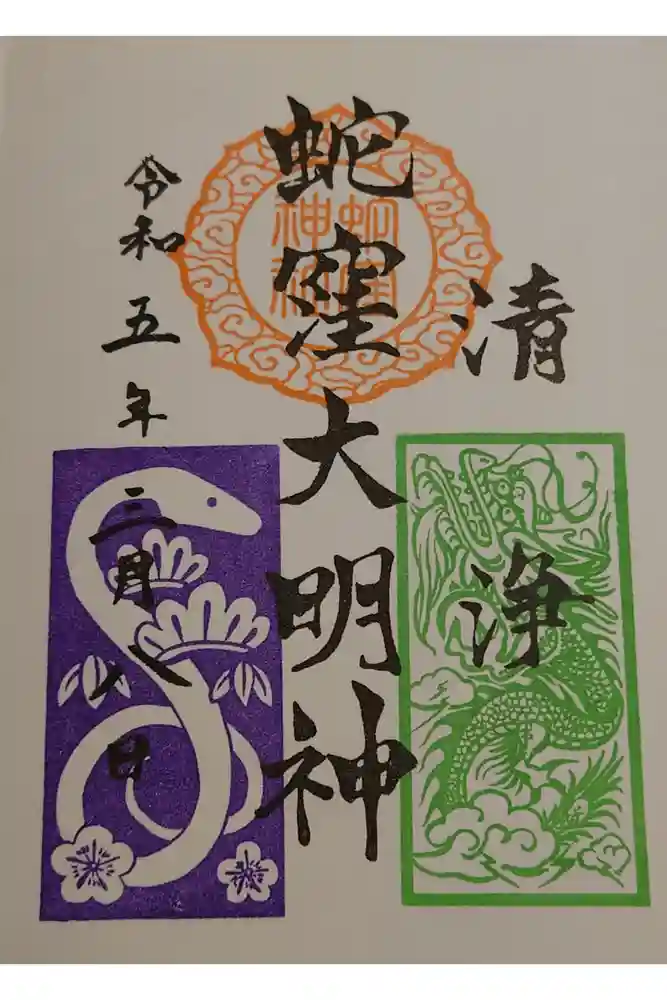 清浄
蛇窪大明神
蛇窪神社
令和五年三月八日